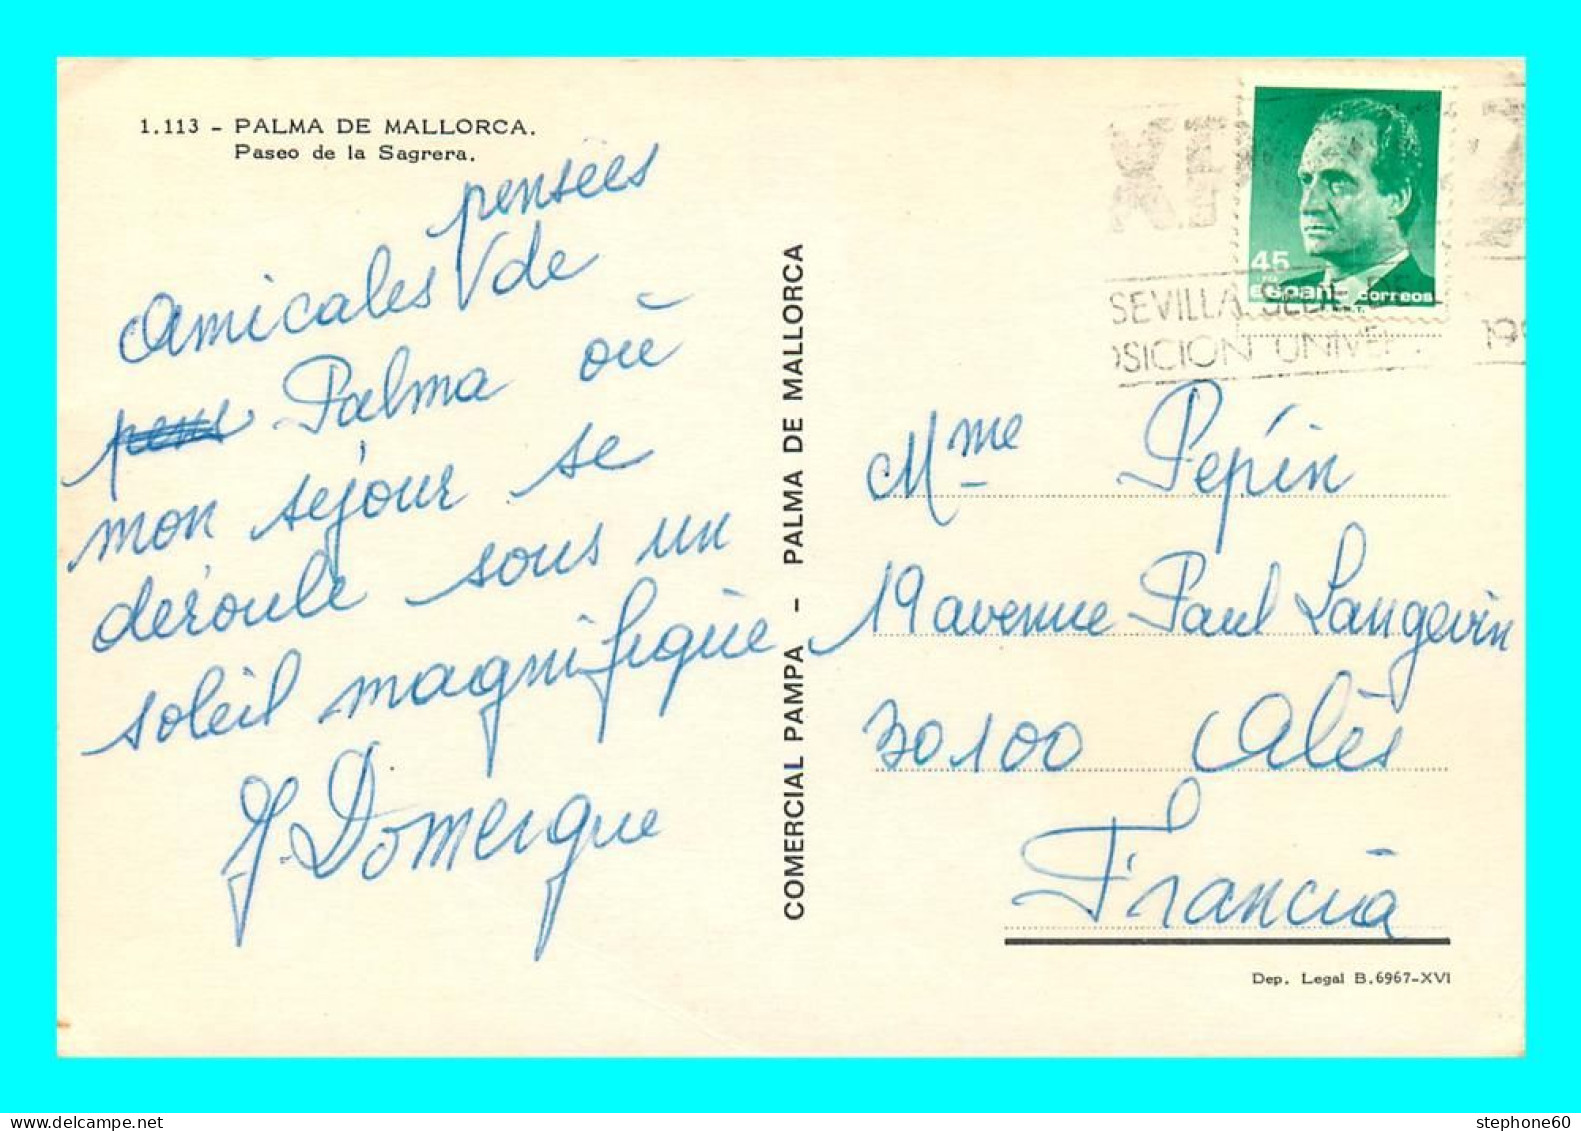 1.113 - PALMA DE MALLORCA.
Paseo de la Sagrera.
pensées
Amicales V de
pens Palma où
mon séjour se
déroule sous un
soleil magnifique
J. Domergue
COMERCIAL PAMPA - PALMA DE MALLORCA
45
España correos
SEVILLA SEDE DE
OSICION UNIVE
19
Mme Pepín
19 avenue Paul Langevin
30100 Alès
Francia
Dep. Legal B.6967-XVI
delcampe.net
stephone60